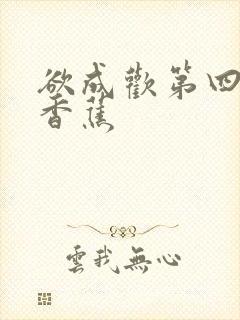 欲成歡第四
香蕉
雲我無心